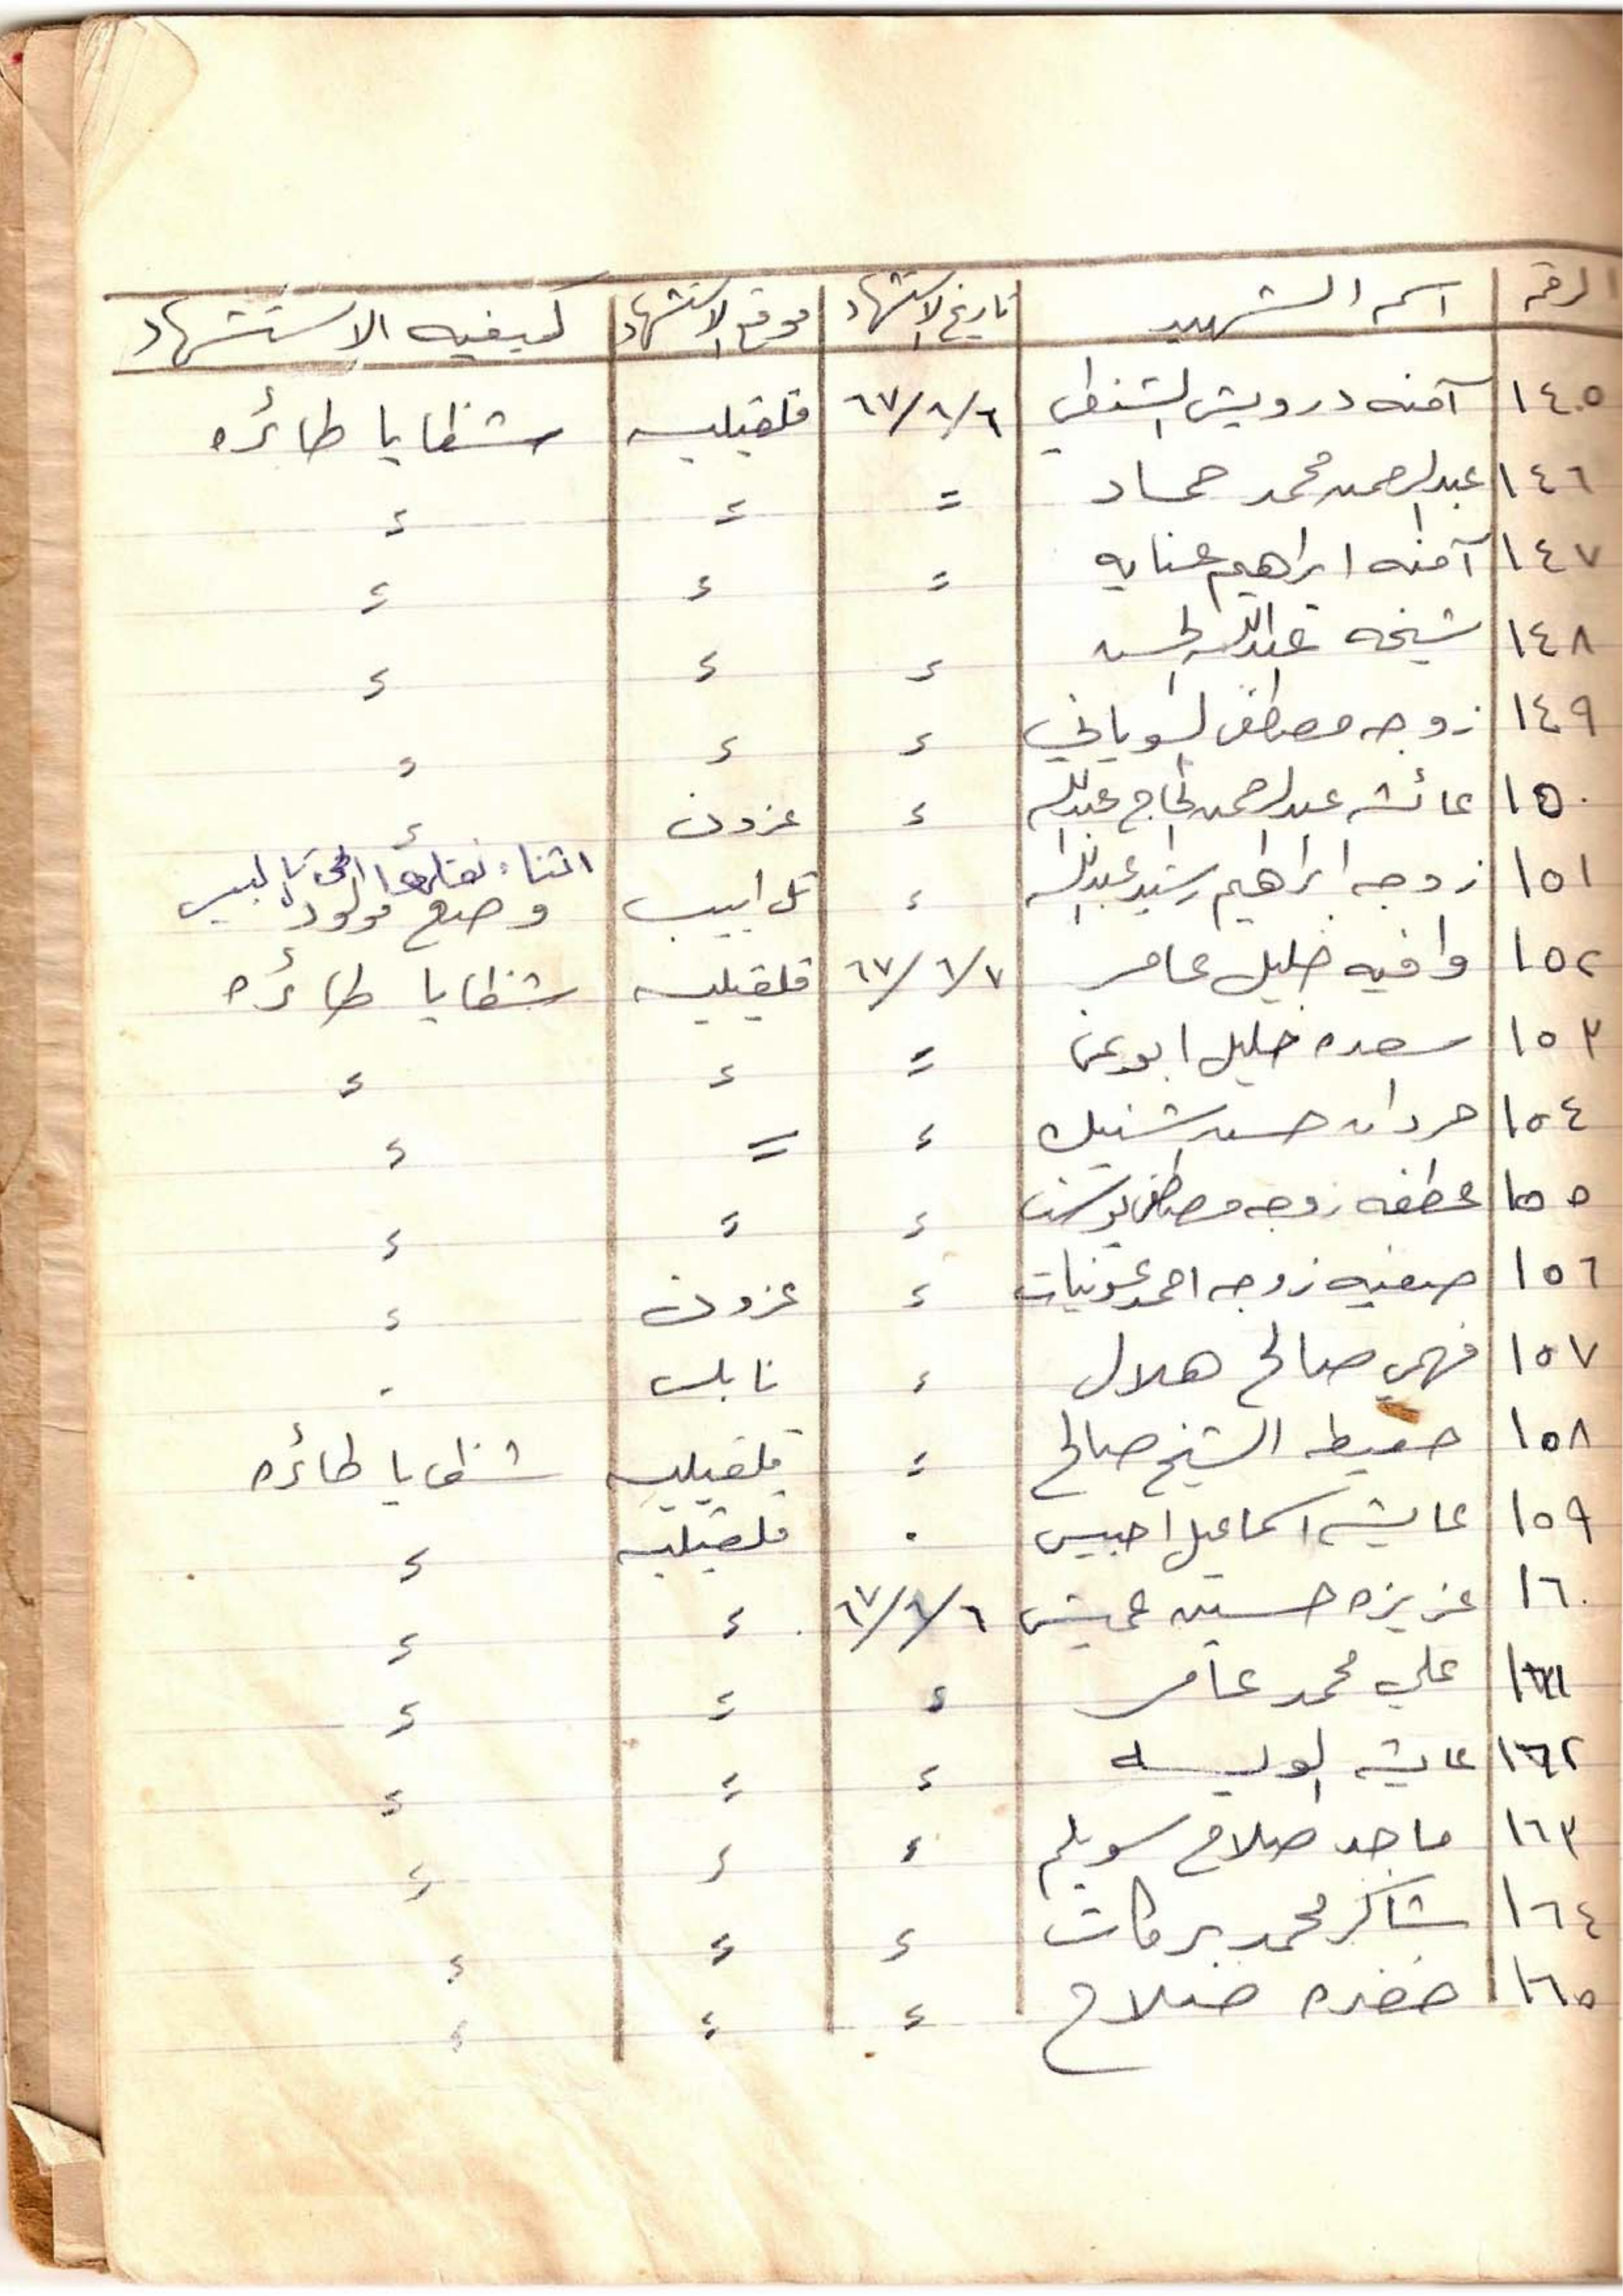 الرقم اسم الشهيد تاريخ الاستشهاد موقع الاستشهاد كيفيه الاستشهاد
١٤٥ آمنه درويش الشنطي ٦٧/٦/٦ قلقيليه شظايا طائره
١٤٦ عبدالرحمن محمد حماد = = =
١٤٧ آمنه ابراهيم عنايه = = =
١٤٨ شيخه عبدالله الحسن = = =
١٤٩ زوجه مصطفى السوياني = = =
١٥٠ عائشه عبدالرحمن الحاج عبدالله = عزون =
١٥١ زوجه ابراهيم رشيد عبدالله = تل ابيب اثناء نقلها الى
وضع مولود
١٥٢ وافيه خليل عامر ٦٧/٦/٧ قلقيليه شظايا طائره
١٥٣ سعده خليل ابو = = =
١٥٤ حردان حسن شنيك = = =
١٥٥ عطفه زوجه مصطفى = = =
١٥٦ صفيه زوجه احمد = عزون =
١٥٧ فهمي صالح هلال = نابلس -
١٥٨ حفيظه الشيخ صالح = قلقيليه شظايا طائره
١٥٩ عايشه اسماعيل احبيس . قلقيليه =
١٦٠ عزيزه حسين عميش ٦٧/٦/٦ = =
١٦١ علي محمد عامر = = =
١٦٢ عايشه = = =
١٦٣ ماجد صلاح سويلم = = =
١٦٤ شاكر محمد بركات = = =
١٦٥ خضره صلاح = = =